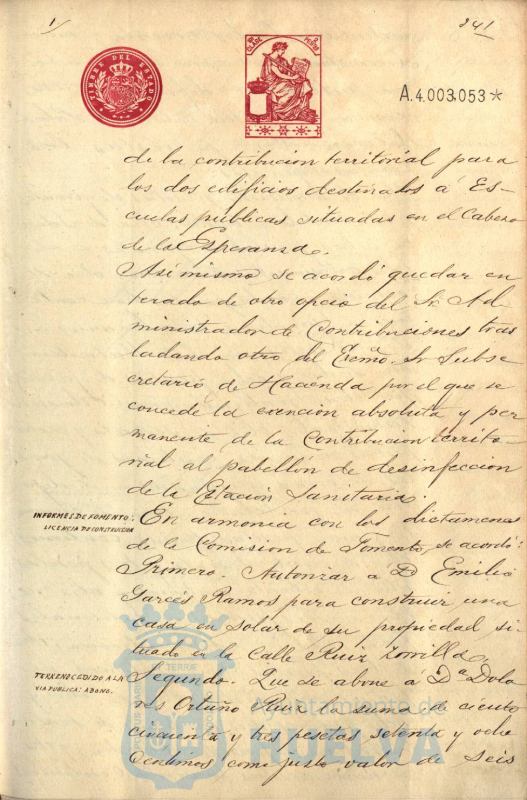 1/
241
TIMBRE DEL ESTADO
A.4.003.053*
de la contribucion territorial para
los dos edificios destinados á Es-
cuelas públicas situadas en el Cabezo
de la Esperanza.
Asi mismo se acordó quedar en
terado de otro oficio del Sr. Ad
ministrador de Contribuciones tras
ladando otro del Excmo. Sr Subse
cretario de Hacienda por el que se
concede la exencion absoluta y per
manente de la Contribucion territo-
rial al pabellón de desinfeccion
de la Estación Sanitaria.
INFORMES DE FOMENTO:
LICENCIA DE CONSTRUCCION
En armonia con los dictamenes
de la Comision de Fomento, se acordó:
Primero. Autorizar a D Emilio
Garcés Ramos para construir una
casa en solar de su propiedad si
tuado en la Calle Ruiz Zorrilla
TERRENO CEDIDO A LA
VIA PUBLICA: ABONO.
Segundo. Que se abone a Dª Dolo
res Ortuño Ruiz la suma de ciento
cincuenta y tres pesetas setenta y ocho
centimos como justo valor de seis
Ayuntamiento de
HUELVA